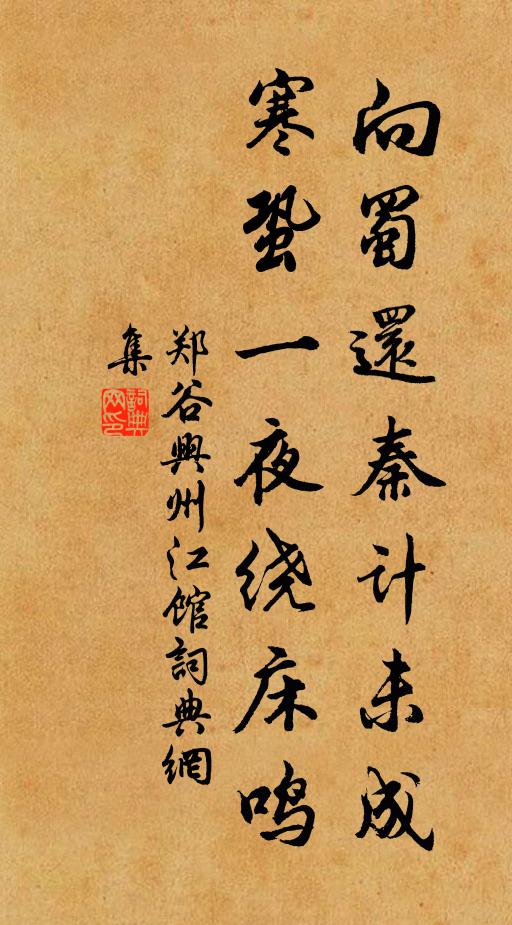 向蜀還秦计未成
寒蛩一夜绕床鸣
郑谷興州江馆詞典網
集
詞典
网印